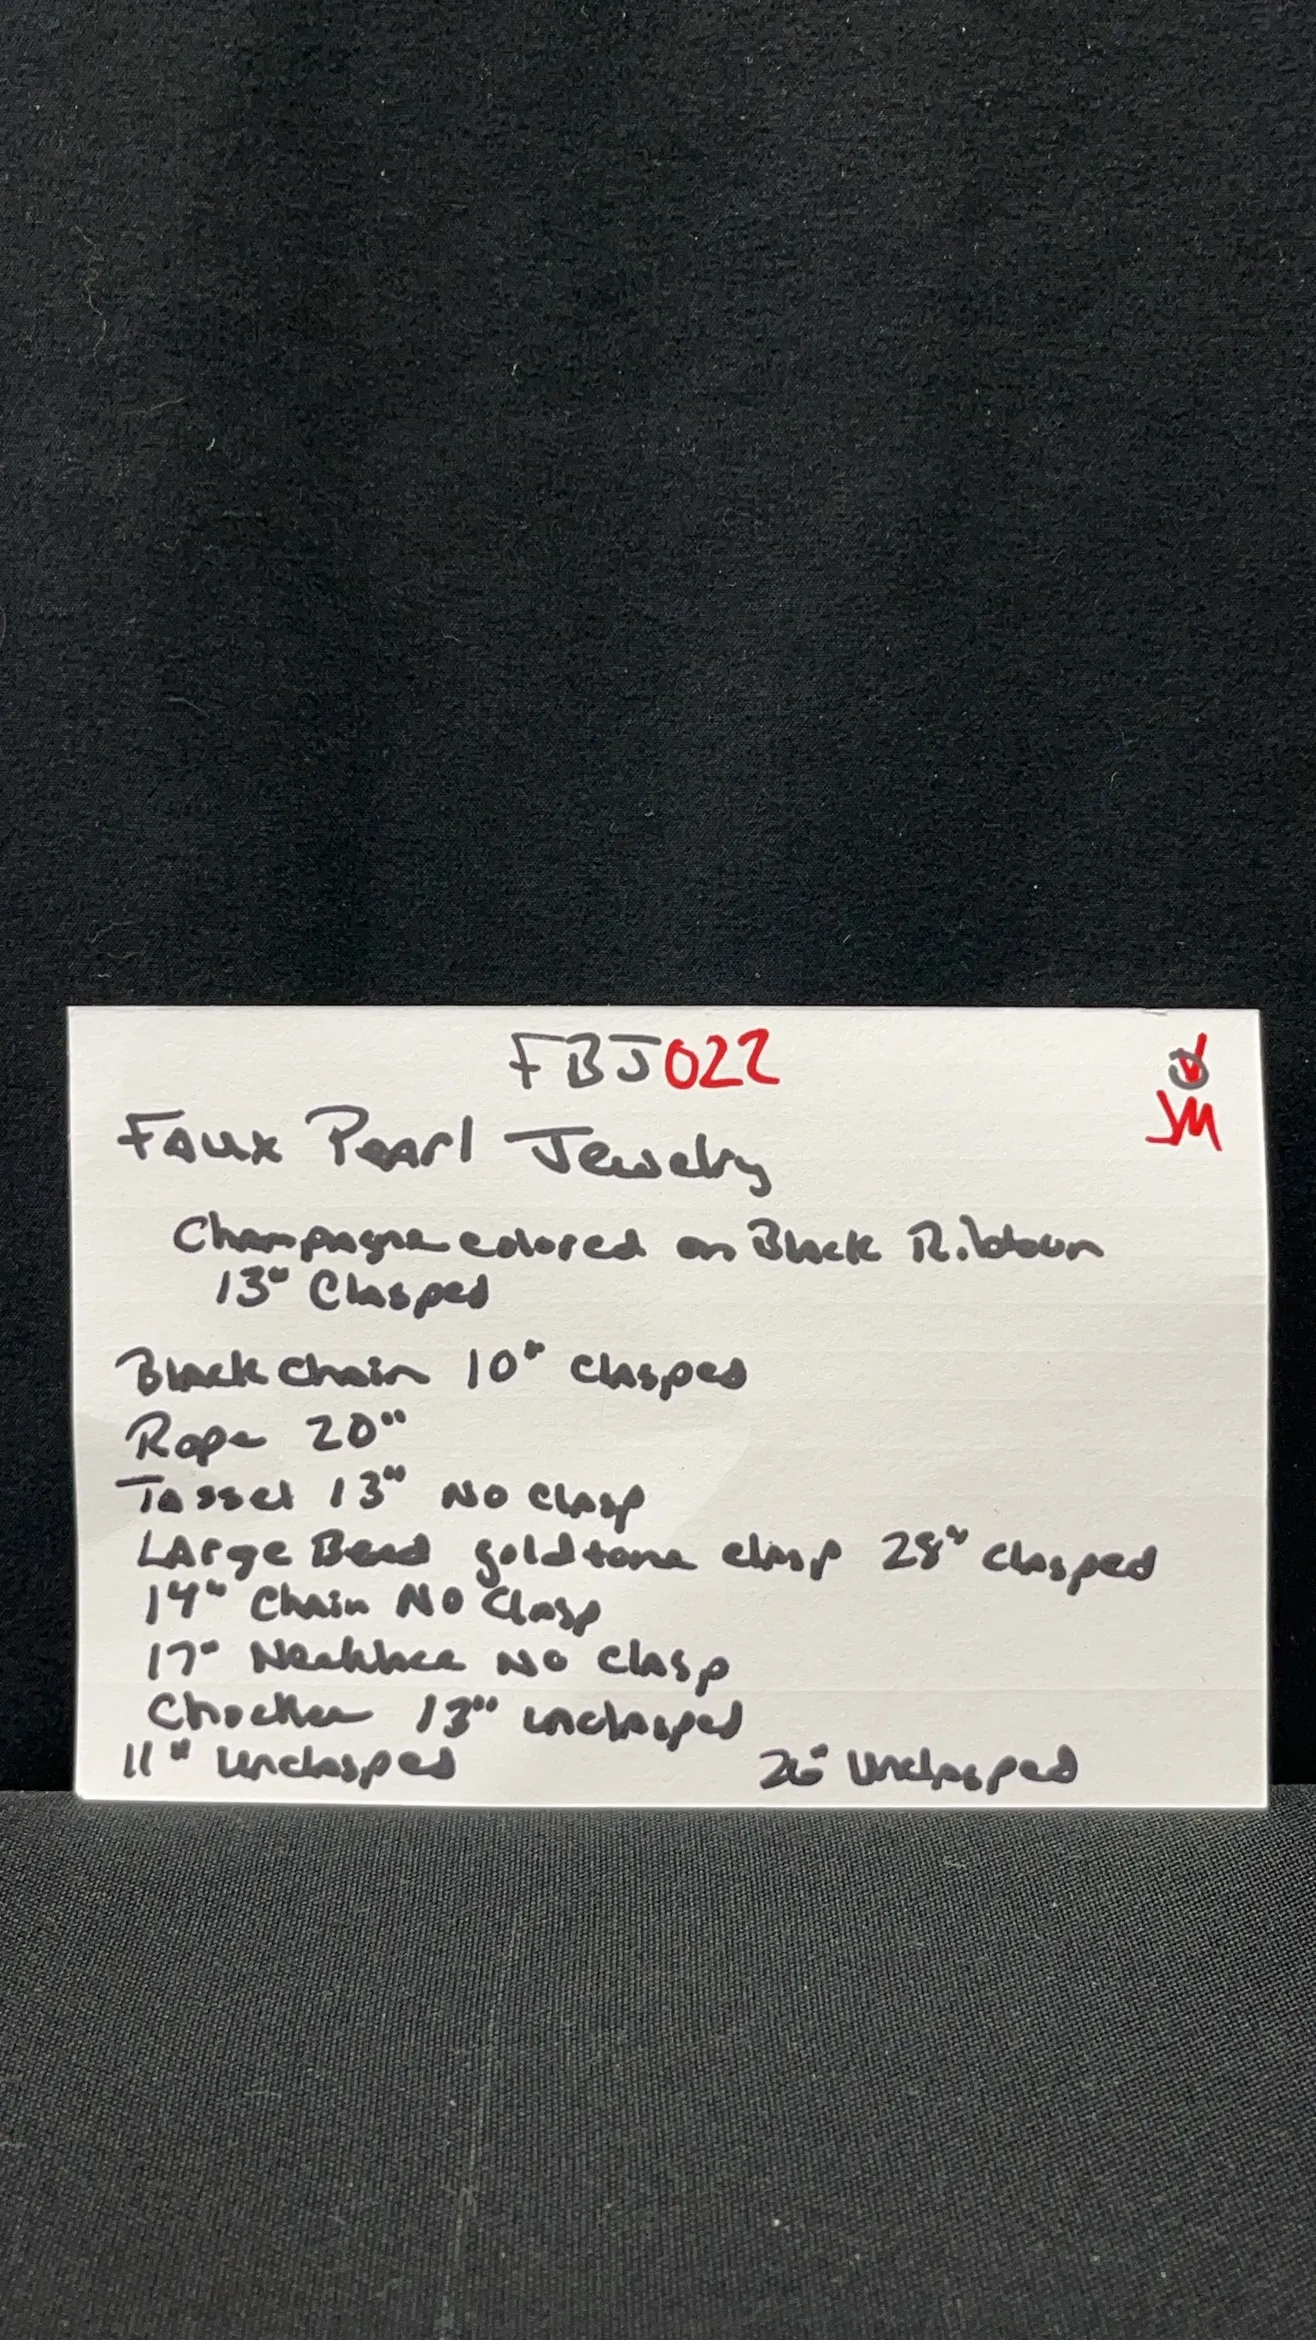 FBJ022
JM
Faux Pearl Jewelry
Champagne colored on Black Ribbon
13" Clasped
Black chain 10" clasped
Rope 20"
Tassel 13" No Clasp
Large Bead goldtone clasp 28" clasped
14" Chain No Clasp
17" Necklace No Clasp
Chocker 13" unclasped
11" Unclasped 26" Unclasped